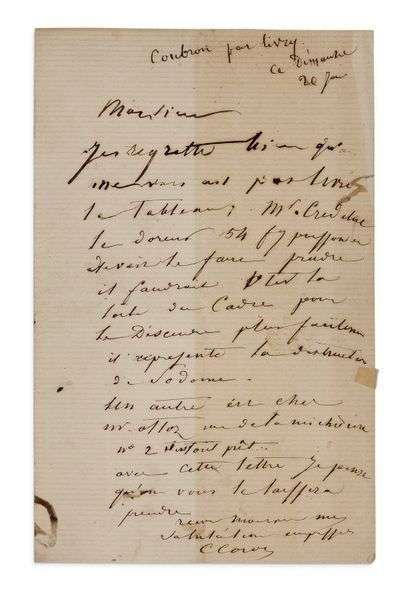 Coubron par Livry
ce Dimanche
Monsieur
Je regrette bien qu'on
ne vous ait pas livré
le Tableau; Mr
le doreur 54 fg poissonière
devait le faire prendre
il faudrait ôter la
toile du Cadre pour
le Descendre plus facilement
il représente la destruction
de Sodome.
Un autre est chez
mr rue de la michodière
no 2 est tout prêt..
avec cette lettre Je pense
qu'on vous le laissera
prendre
recevez monsieur mes
salutations empressées
C Corot